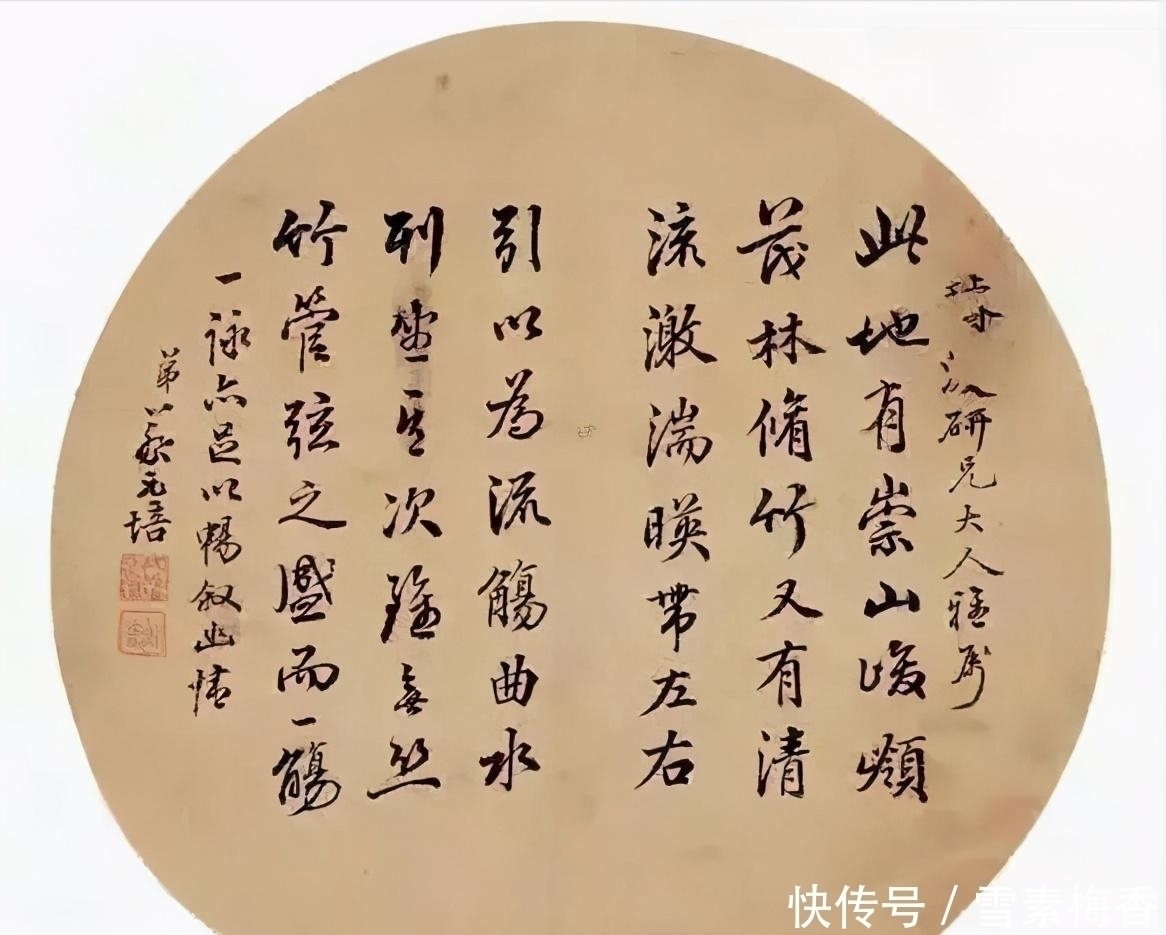 研兄大人雅屬
此地有崇山峻領
茂林脩竹又有清
流激湍暎帶左右
引以為流觴曲水
列坐其次雖無絲
竹管弦之盛而一觴
一詠亦足以暢叙幽情
弟蔡元培
快传号 / 雪素梅香